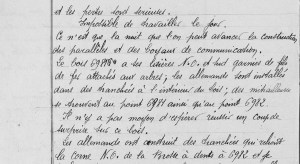 et les pertes sont sérieuses.
Impossible de travailler le jour.
Ce n'est que la nuit que l'on peut avancer la construction
des parallèles et des boyaux de communication.
Le bois a ses lisières N.O. et sud garnies de fils
de fer attachés aux arbres; les allemands sont installés
dans des tranchées à l'intérieur du bois; des mitrailleuses
se trouvent au point 6971 ainsi qu'au point 6962.
Il n'y a pas moyen d'espérer réussir un coup de
surprise sur ce bois.
Les allemands ont construit des tranchées qui relient
la corne N.E. de la à dents à 6962 et je